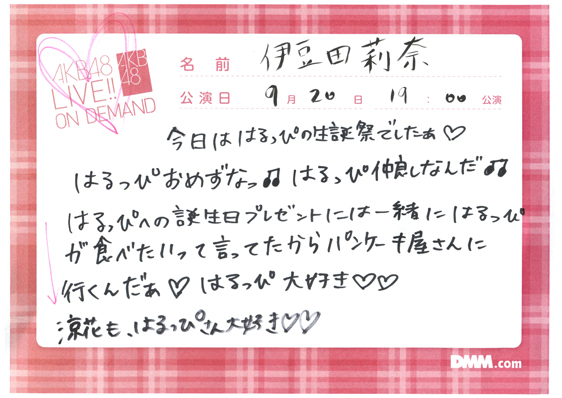 AKB48
LIVE!!
ON DEMAND
AKB
48
名前 伊豆田莉奈
公演日 9月20日 19:00公演
今日ははるっぴの生誕祭でしたぁ♡
はるっぴおめずなっ♫ はるっぴ仲良しなんだ♫
はるっぴへの誕生日プレゼントには一緒にはるっぴ
が食べたいって言ってたからパンケーキ屋さんに
行くんだぁ♡ はるっぴ大好き♡♡
涼花も、はるっぴさん大好き♡♡
DMM.com